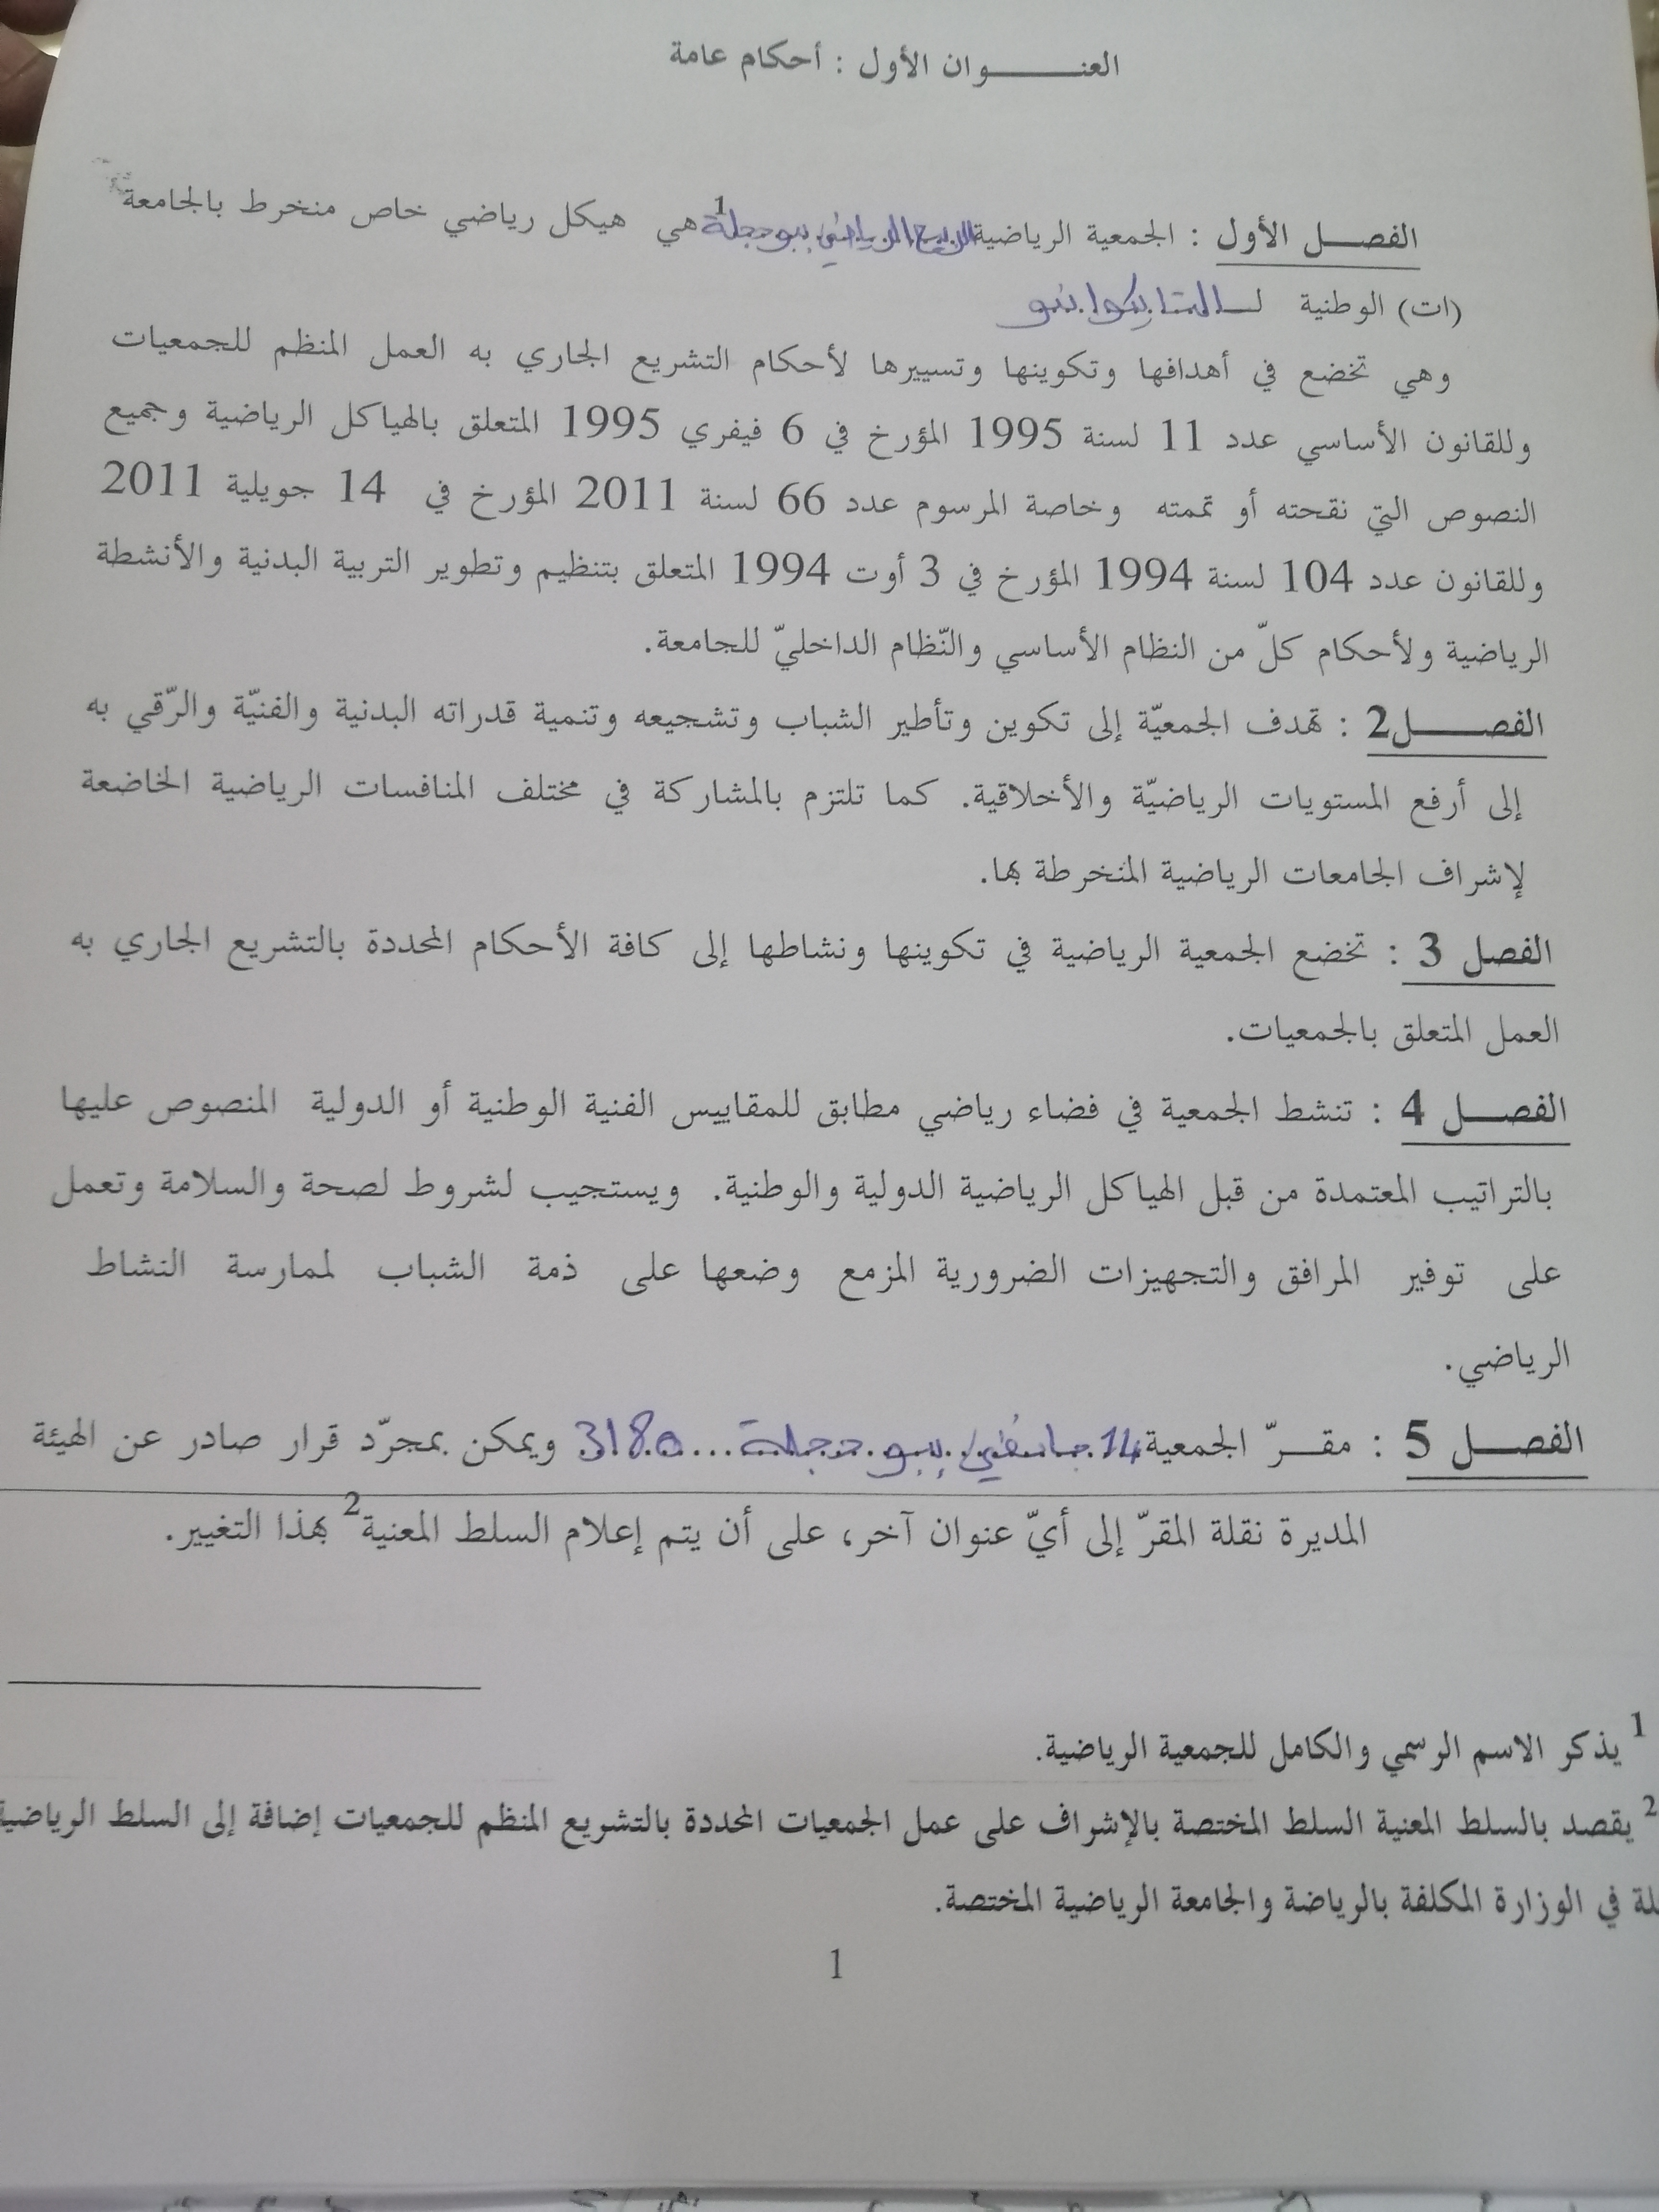 العنـــــوان الأول : أحكام عامة
الفصـــل الأول : الجمعية الرياضية الربيع الرياضي ببوحجلة1 هي هيكل رياضي خاص منخرط بالجامعة
(ات) الوطنية لـ التايكواندو
وهي تخضع في أهدافها وتكوينها وتسييرها لأحكام التشريع الجاري به العمل المنظم للجمعيات
وللقانون الأساسي عدد 11 لسنة 1995 المؤرخ في 6 فيفري 1995 المتعلق بالهياكل الرياضية وجميع
النصوص التي نقحته أو تممته وخاصة المرسوم عدد 66 لسنة 2011 المؤرخ في 14 جويلية 2011
وللقانون عدد 104 لسنة 1994 المؤرخ في 3 أوت 1994 المتعلق بتنظيم وتطوير التربية البدنية والأنشطة
الرياضية ولأحكام كلّ من النظام الأساسي والنّظام الداخليّ للجامعة.
الفصــــل2 : تهدف الجمعيّة إلى تكوين وتأطير الشباب وتشجيعه وتنمية قدراته البدنية والفنيّة والرّقي به
إلى أرفع المستويات الرياضيّة والأخلاقية. كما تلتزم بالمشاركة في مختلف المنافسات الرياضية الخاضعة
لإشراف الجامعات الرياضية المنخرطة بها.
الفصل 3 : تخضع الجمعية الرياضية في تكوينها ونشاطها إلى كافة الأحكام المحددة بالتشريع الجاري به
العمل المتعلق بالجمعيات.
الفصـــل 4 : تنشط الجمعية في فضاء رياضي مطابق للمقاييس الفنية الوطنية أو الدولية المنصوص عليها
بالتراتيب المعتمدة من قبل الهياكل الرياضية الدولية والوطنية. ويستجيب لشروط لصحة والسلامة وتعمل
على توفير المرافق والتجهيزات الضرورية المزمع وضعها على ذمة الشباب لممارسة النشاط
الرياضي.
الفصـــل 5 : مقـــرّ الجمعية 14 جانفي ببوحجلة...3180 ويمكن بمجرّد قرار صادر عن الهيئة
المديرة نقلة المقرّ إلى أيّ عنوان آخر، على أن يتم إعلام السلط المعنية2 بهذا التغيير.
1 يذكر الاسم الرسمي والكامل للجمعية الرياضية.
2 يقصد بالسلط المعنية السلط المختصة بالإشراف على عمل الجمعيات المحددة بالتشريع المنظم للجمعيات إضافة إلى السلط الرياضية
في الوزارة المكلفة بالرياضة والجامعة الرياضية المختصة.
1